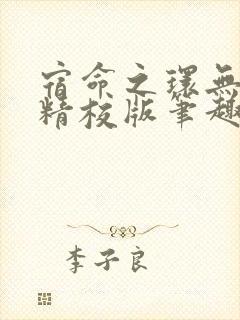 宿命之环無
精校版筆趣
李子良